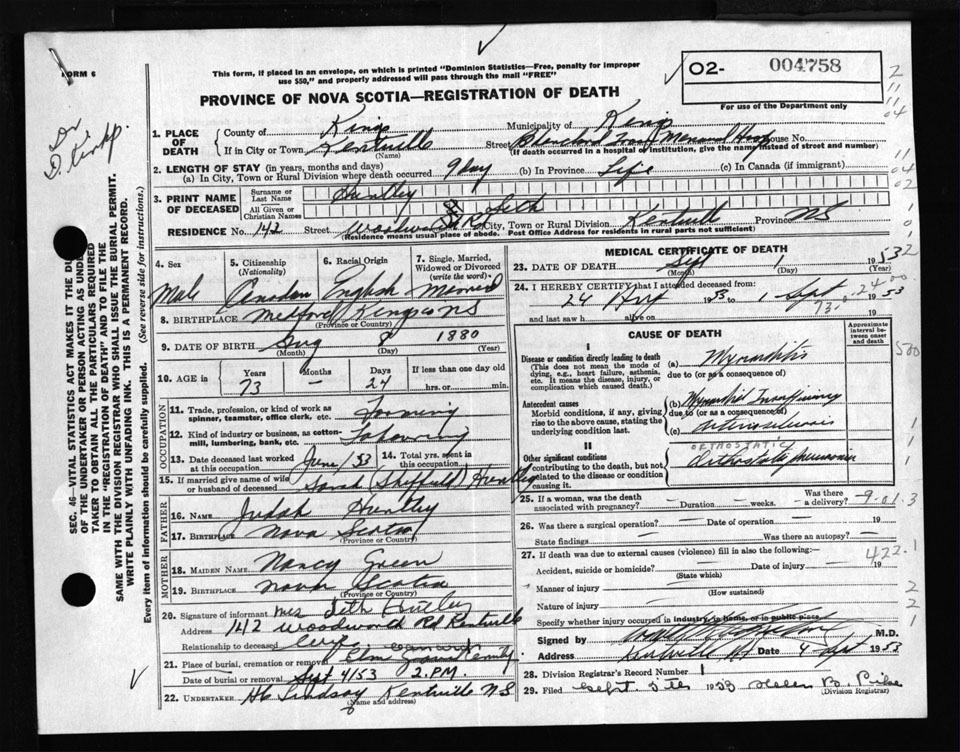 FORM 6
This form, if placed in an envelope, on which is printed "Dominion Statistics—Free, penalty for improper
use $50," and properly addressed will pass through the mail "FREE"
O2- 004758
For use of the Department only
PROVINCE OF NOVA SCOTIA—REGISTRATION OF DEATH
Dr
1. PLACE OF DEATH
County of Kings
Municipality of Kings
If in City or Town Kentville
(Name)
Street House No.
(If death occurred in a hospital or institution, give the name instead of street and number)
2. LENGTH OF STAY (in years, months and days)
(a) In City, Town or Rural Division where death occurred 9 day (b) In Province Life (c) In Canada (if immigrant)
3. PRINT NAME OF DECEASED
Surname or Last Name Huntley
All Given or Christian Names Seth
RESIDENCE No. 142 Street Woodworth Rd City, Town or Rural Division Kentville Province NS
(Residence means usual place of abode. Post Office Address for residents in rural parts not sufficient)
4. Sex
Male
5. Citizenship
(Nationality)
Canadian
6. Racial Origin
English
7. Single, Married,
Widowed or Divorced
(write the word)
Married
8. BIRTHPLACE Medford Kings co NS
(Province or Country)
9. DATE OF BIRTH Aug 8 1880
(Month) (Day) (Year)
10. AGE in
Years Months Days If less than one day old
73 — 24 hrs. or min.
OCCUPATION
11. Trade, profession, or kind of work as
spinner, teamster, office clerk, etc. Farming
12. Kind of industry or business, as cotton-
mill, lumbering, bank, etc. Labouring
13. Date deceased last worked
at this occupation June/53
14. Total yrs. spent in
this occupation
15. If married give name of wife
or husband of deceased Sarah (Sheffield) Huntley
FATHER
16. NAME Judah Huntley
17. BIRTHPLACE Nova Scotia
(Province or Country)
MOTHER
18. MAIDEN NAME Nancy Green
19. BIRTHPLACE Nova Scotia
(Province or Country)
20. Signature of informant Mrs Seth Huntley
Address 142 Woodworth Rd Kentville
Relationship to deceased wife
21. Place of burial, cremation or removal
Date of burial or removal Sept 4/53 2 P.M.
22. UNDERTAKER Lindsay Kentville N S
(Name and address)
MEDICAL CERTIFICATE OF DEATH
23. DATE OF DEATH Sept 1 1953
(Month) (Day) (Year)
24. I HEREBY CERTIFY that I attended deceased from:
24 53 to 1 Sept 1953
and last saw h alive on 19
CAUSE OF DEATH
Approximate
interval between
onset and
death
I
Disease or condition directly leading to death
(This does not mean the mode of
dying, e.g., heart failure, asthenia,
etc. It means the disease, injury, or
complication which caused death.)
(a) Myocarditis
due to (or as a consequence of)
Antecedent causes
Morbid conditions, if any, giving
rise to the above cause, stating the
underlying condition last.
(b) Myocardial Insufficiency
due to (or as a consequence of)
(c) Arteriosclerosis
II
Other significant conditions
contributing to the death, but not
related to the disease or condition
causing it.
ORTHOSTATIC
Orthostatic pneumonia
25. If a woman, was the death
associated with pregnancy? — Duration — weeks. Was there
a delivery? —
26. Was there a surgical operation? — Date of operation — 19
State findings Was there an autopsy? —
27. If death was due to external causes (violence) fill in also the following:—
Accident, suicide or homicide? — Date of injury — 19
(State which)
Manner of injury —
(How sustained)
Nature of injury —
Specify whether injury occurred in industry, in home, or in public place
Signed by M.D.
Address Kentville NS Date 4 Sept 1953
28. Division Registrar's Record Number 1
29. Filed Sept. 5th 1953 Helen B.
(Division Registrar)
SEC. 46—VITAL STATISTICS ACT MAKES IT THE DUTY
OF THE UNDERTAKER OR PERSON ACTING AS UNDER-
TAKER TO OBTAIN ALL THE PARTICULARS REQUIRED
IN THE "REGISTRATION OF DEATH" AND TO FILE THE
SAME WITH THE DIVISION REGISTRAR WHO SHALL ISSUE THE BURIAL PERMIT.
WRITE PLAINLY WITH UNFADING INK. THIS IS A PERMANENT RECORD.
Every item of information should be carefully supplied. (See reverse side for instructions.)
422.1